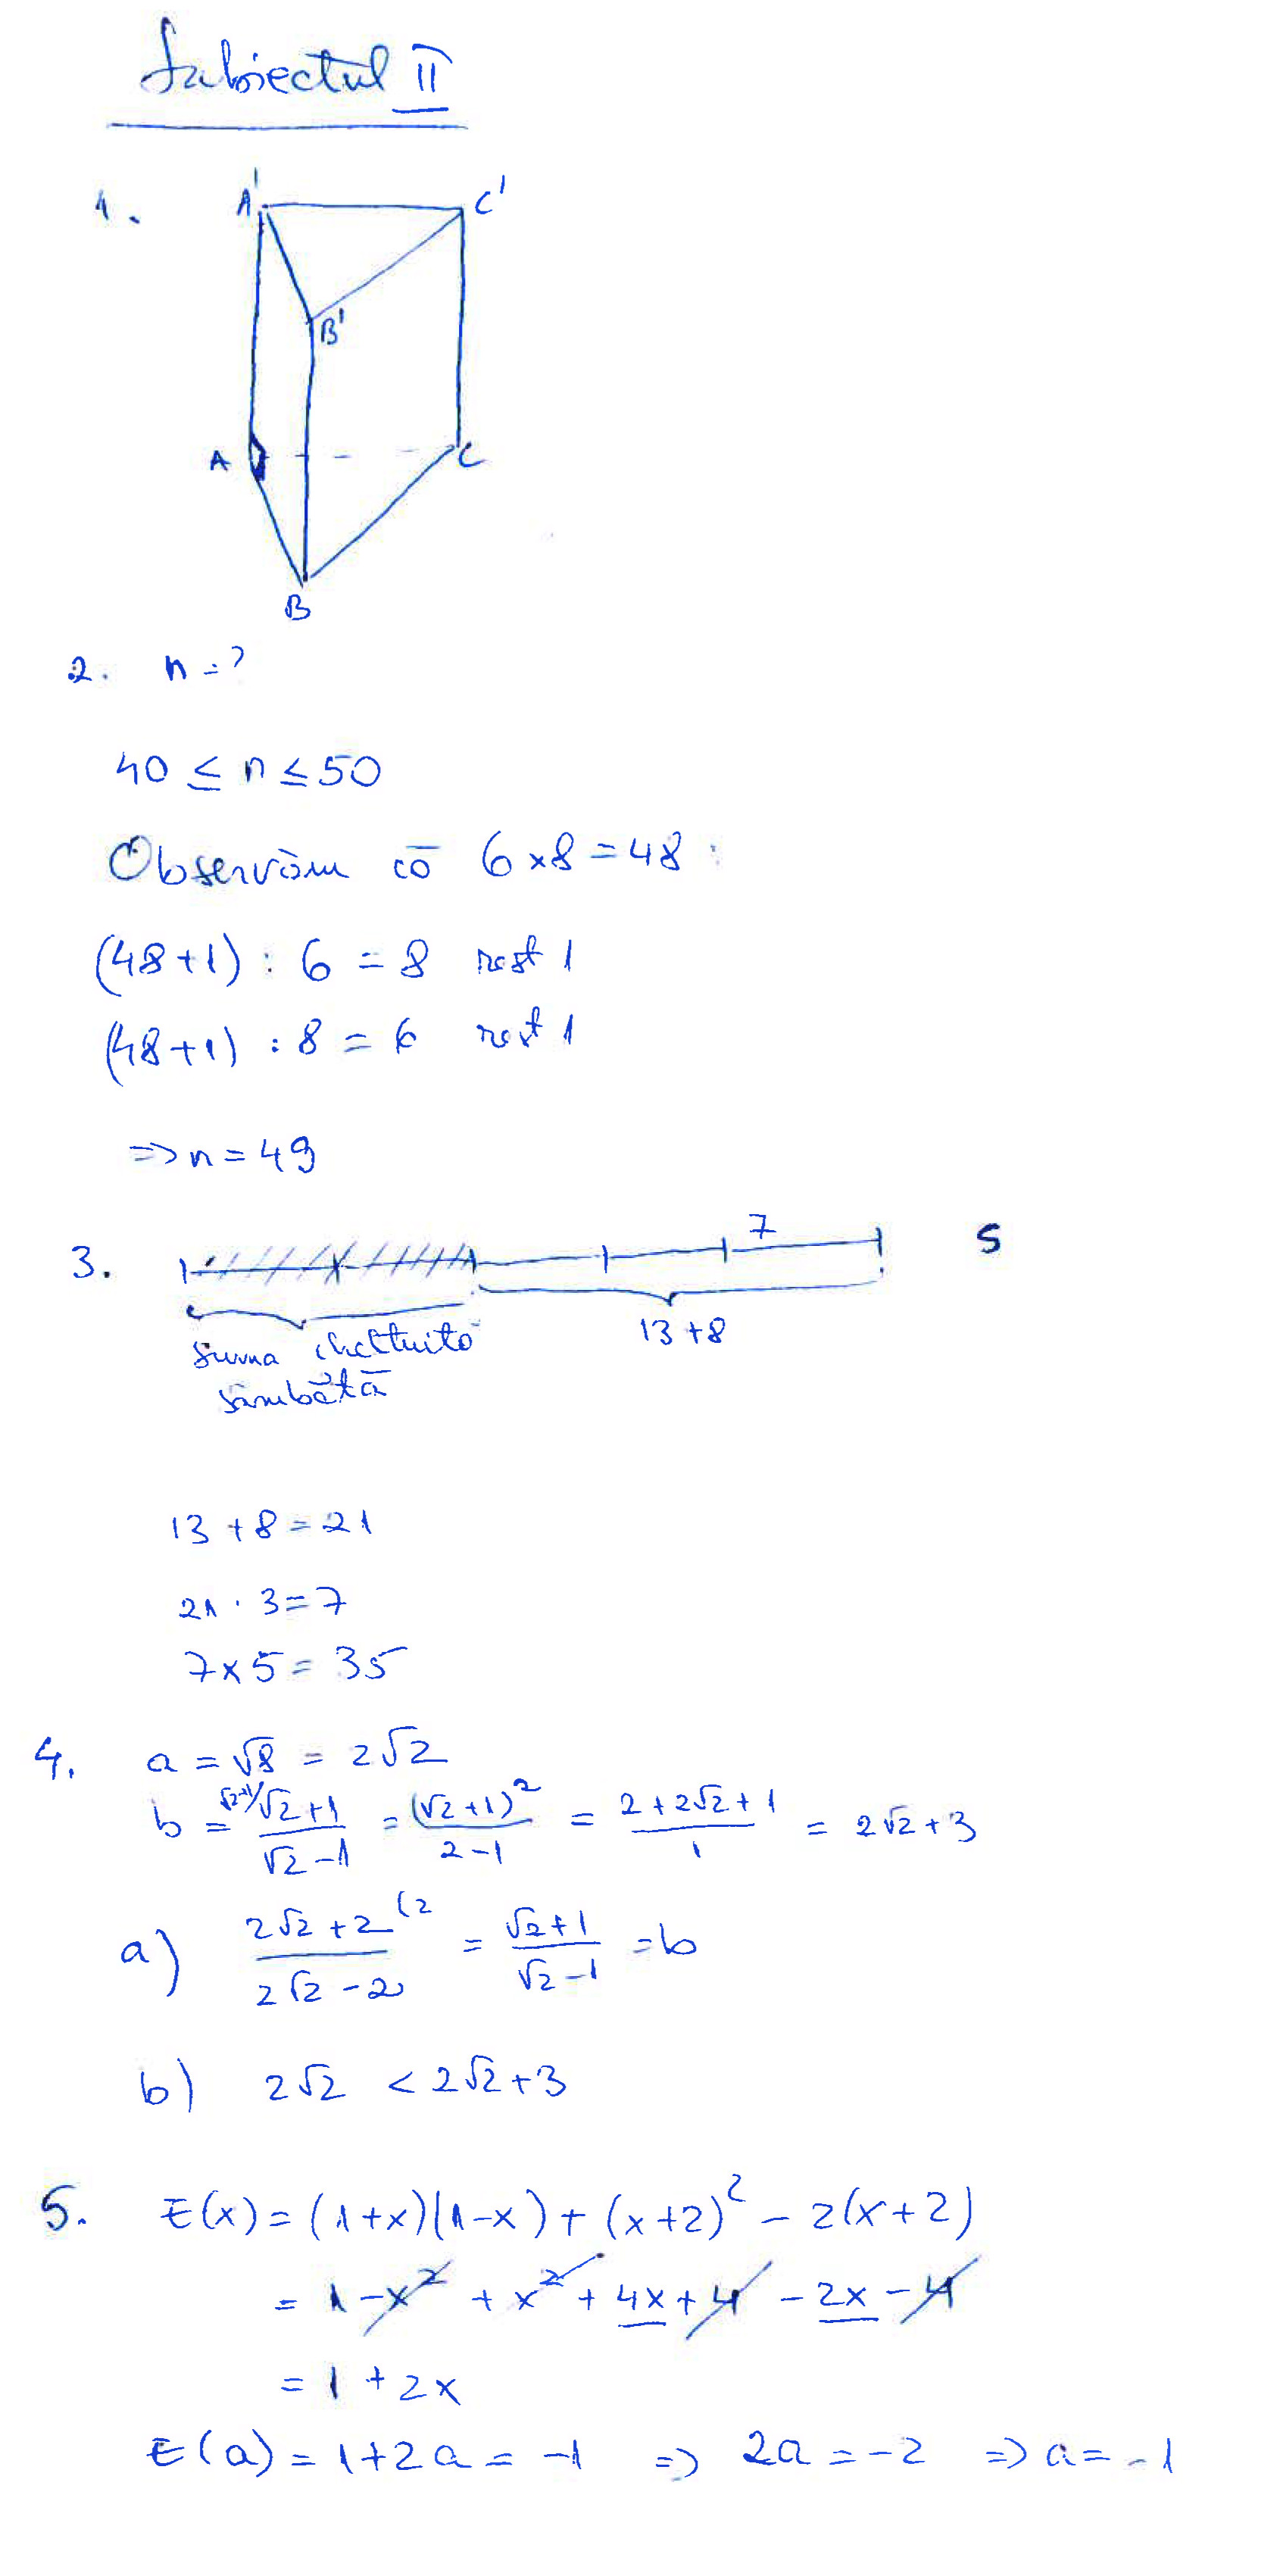 Subiectul II
1.
A' C'
B'
A C
B
2. n=?
40 ≤ n ≤ 50
Observăm că 6x8=48:
(48+1) : 6 = 8 rest 1
(48+1) : 8 = 6 rest 1
=> n = 49
3. 7 S
13+8
suma cheltuită
sâmbătă
13 + 8 = 21
21 · 3 = 7
7x5 = 35
4. a = √8 = 2√2
b = √2+1/ (√2+1)/(√2-1) = (√2+1)²/(2-1) = (2+2√2+1)/1 = 2√2+3
a) (2√2+2)/(2√2-2) (2 = (√2+1)/(√2-1) = b
b) 2√2 < 2√2+3
5. E(x) = (1+x)(1-x) + (x+2)² - 2(x+2)
= 1 - x² + x² + 4x + 4 - 2x - 4
= 1 + 2x
E(a) = 1+2a = -1 => 2a = -2 => a = -1